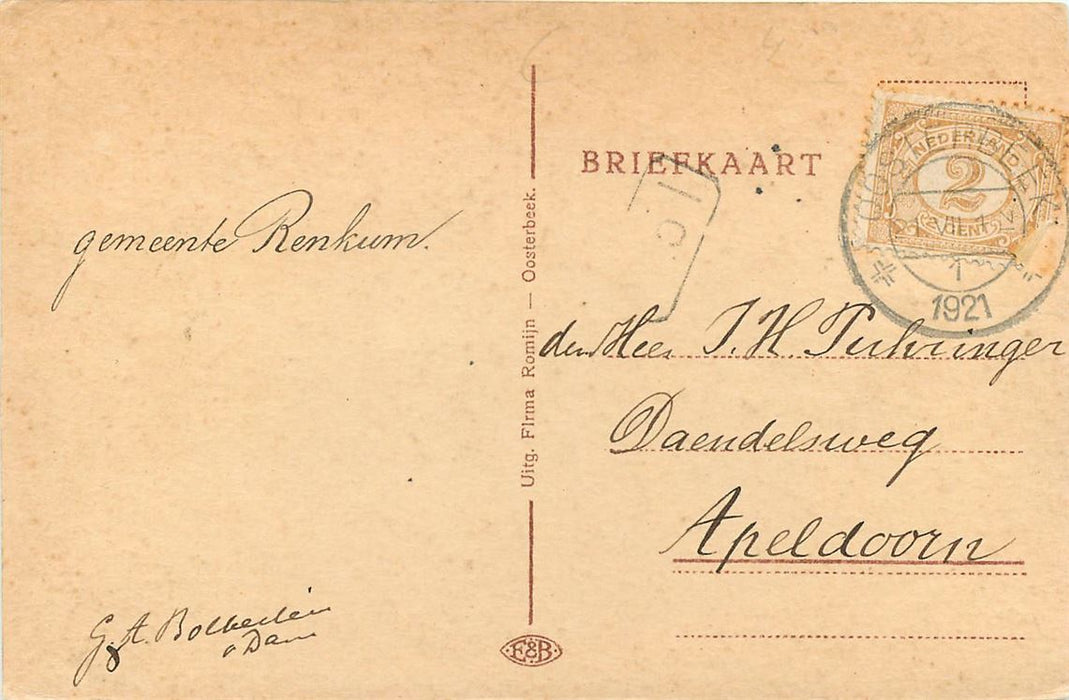 gemeente Renkum.
G. A.
Dam
Uitg. Firma Romijn — Oosterbeek.
E&B
BRIEFKAART
NEDERLAND
2
CENT
1
1921
den Heer J. H. Tuhringer
Daendelsweg
Apeldoorn